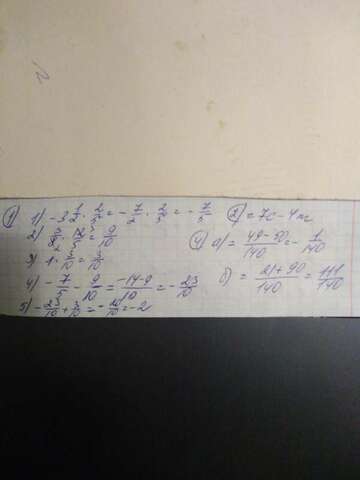 1) 1) -3 1/2 · 2/5 = -7/2 · 2/5 = -7/5
2) 3/8 · 12/5 = 9/10
3) 1 · 3/10 = 3/10
4) -7/5 - 9/10 = (-14-9)/10 = -23/10
5) -23/10 + 3/10 = -20/10 = -2
2) = 7c - 4m
4) а) = (49-50)/140 = -1/140
б) = (21+90)/140 = 111/140